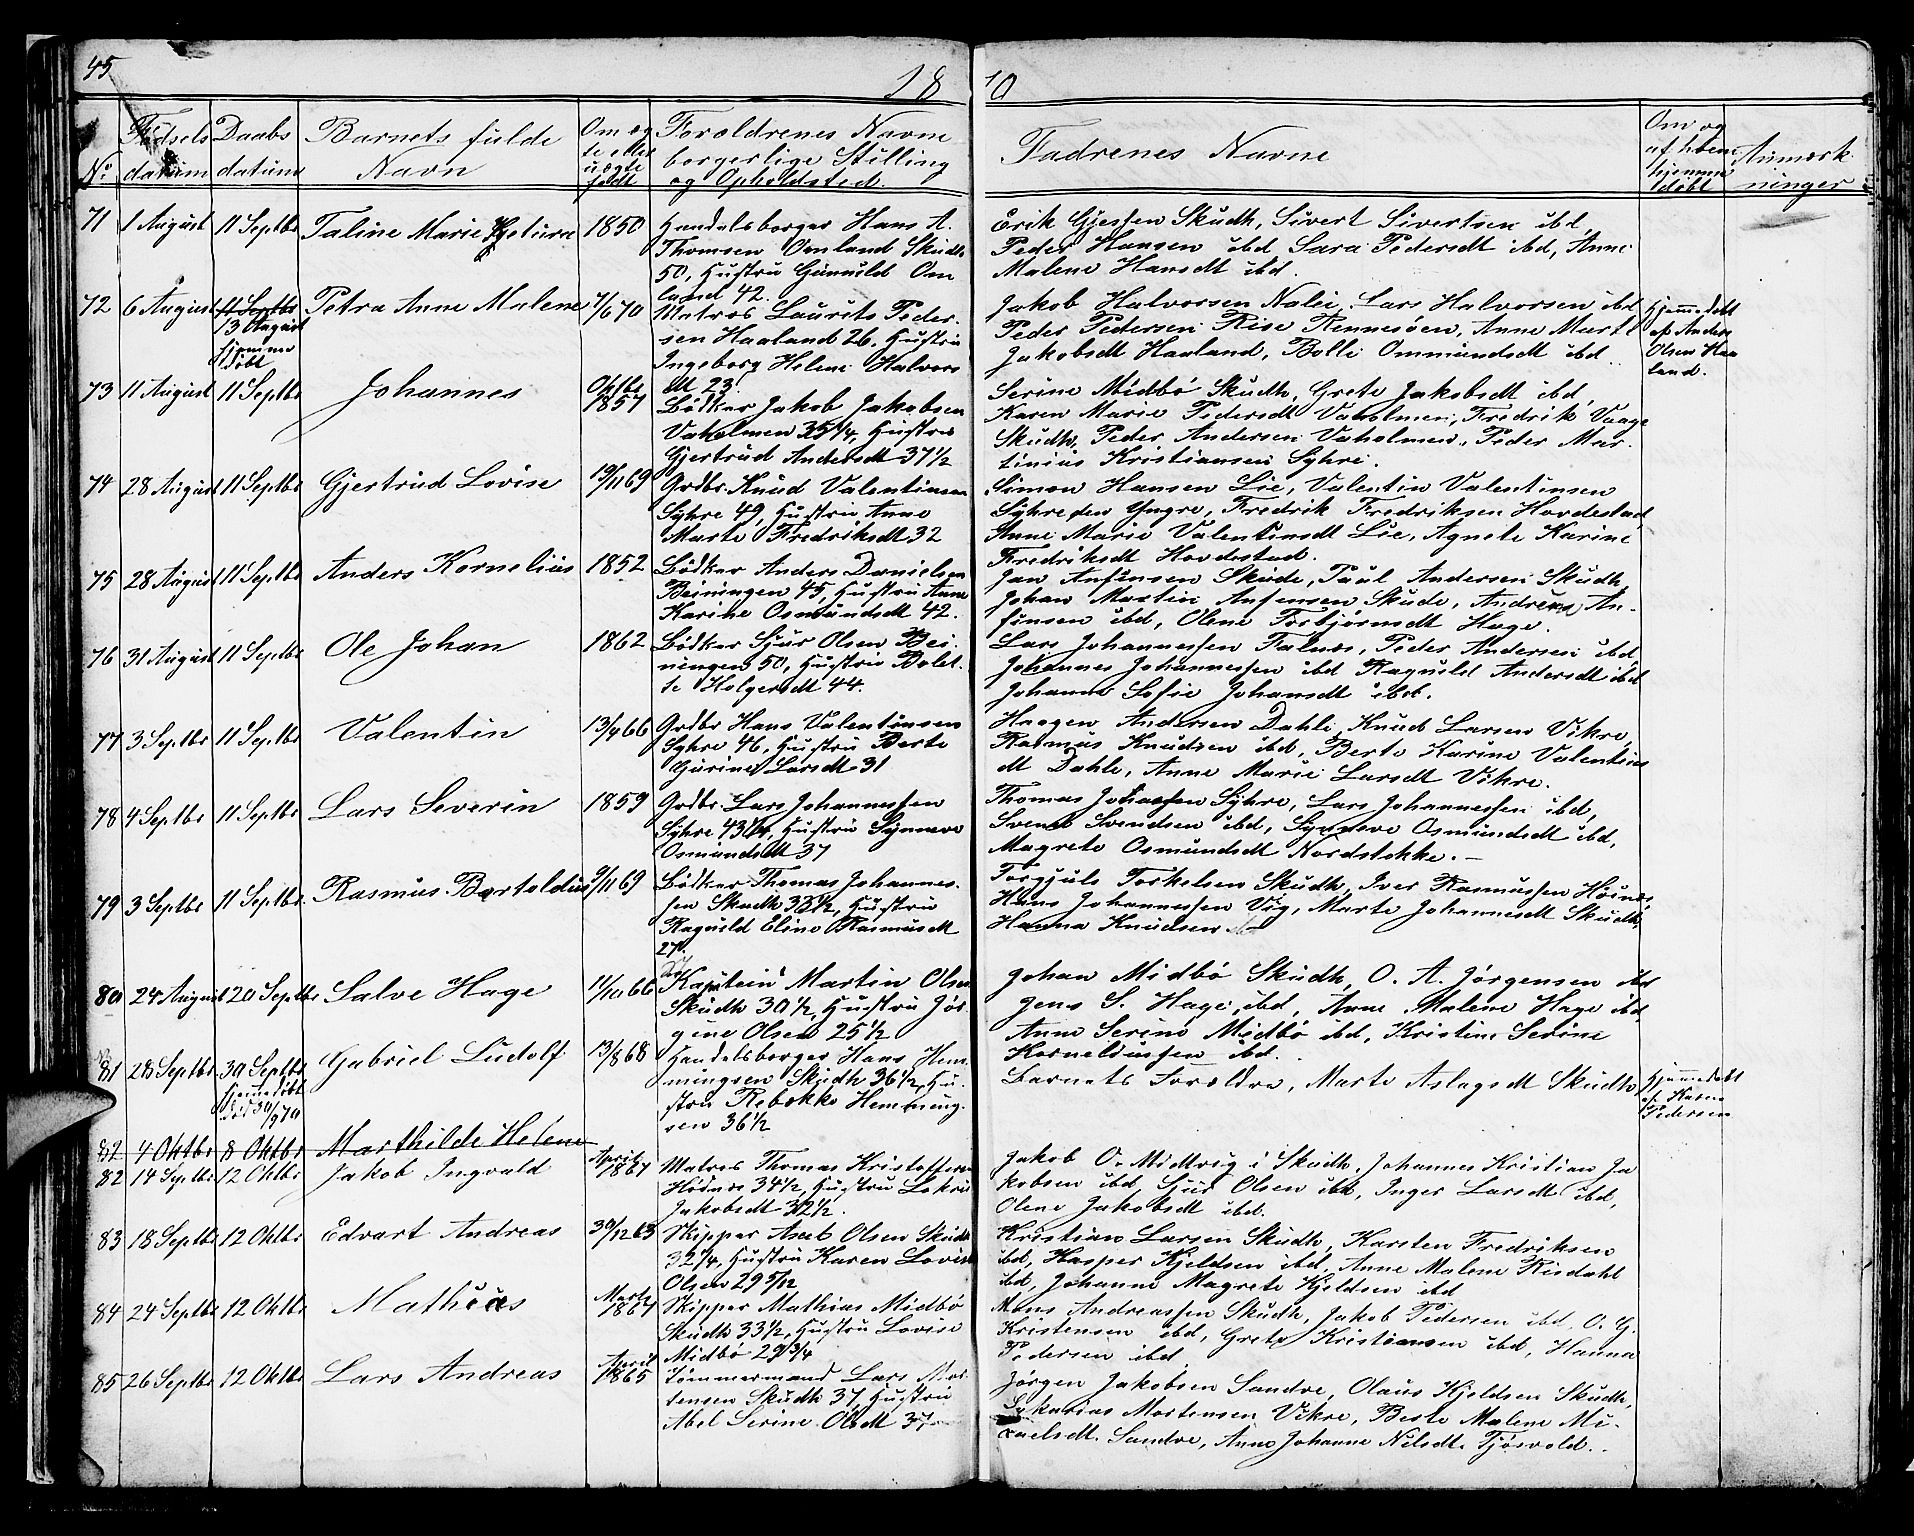 45
18
70
No
Fødsels datum
Daabs datum
Barnets fulde Navn
Om ægte eller uægte født
Forældrenes Navne borgerlige Stilling og Opholdsted.
Fadrenes Navne
Om og af hvem hjemme døbt
Anmærkninger
71 1 August 11 Septbr Taline Marie 1850 Handelsborger Hans A.
Thomsen Omland Skudh
50, Hustru Gunuld Om
land 42.
Erik Gjessen Skudh, Sivert Sivertsen ibd,
Peder Hansen ibd, Sara Pedersdt ibd, Anne
Malene Hansdt ibd.
72 6 August 11 Septbr 13 August hjemme døbt Petra Anne Malene 7/6 70 Matros Laurits Peder-
sen Haaland 26, Hustru
Ingeborg Helene Halvors
dt 23.
Jakob Halvorsen Nalei, Lars Halvorsen ibd
Peder Pedersen Rise Rennesøen, Anne Mart
Jakobsdt Haaland, Bolli Ommundsdt ibd.
Hjemmedøbt af Anders Olsen Haaland.
73 11 August 11 Septbr Johannes Oktbr 1857
Bødker Jakob Jakobsen
Vaholmen 35 1/4, Hustru
Gjertrud Andersdt 37 1/2
Serine Midbø Skudh, Grete Jakobsdt ibd,
Karen Marie Pedersdt Vaholmen, Fredrik Vaage
Skudh, Peder Andersen Vaholmen, Peder Mar-
tinius Kristiansen Syhre.
74 28 August 11 Septbr Gjertrud Lovise 19/11 69 Grdbr. Knud Valentinsen
Syhre 49, Hustru Anne
Marte Fredriksdt 32
Simon Hansen Lie, Valentin Valentinsen
Syhre den Yngre, Fredrik Fredriksen Hovdestad,
Anne Marie Valentinsdt Lie, Agnete Karine
Fredriksdt Hovdestad.
75 28 August 11 Septbr Anders Kornelius 1852 Bødker Anders Danielsen
Beiningen 45, Hustru Anne
Karine Osmundsdt 42.
Jan Anfinsen Skude, Paul Andersen Skudh,
Johan Martin Anfinsen Skude, Andreas An-
finsen ibd, Olene Torbjørnsdt Hage.
76 31 August 11 Septbr Ole Johan 1862 Bødker Sjur Olsen Bei-
ningen 50, Hustru Bolet-
te Holgersdt 44.
Lars Johannessen Falnæs, Peder Andersen ibd,
Johannes Johannessen ibd Ragnild Andersdt ibd
Johanne Sofie Johansdt ibd.
77 3 Septbr 11 Septbr Valentin 13/4 66 Grdbr Hans Valentinsen
Syhre 46, Hustru Berte
Gurine Larsdt 31
Haagen Andersen Dahle, Knud Larsen Vikre,
Rasmus Knudsen ibd, Berte Karine Valentins
dt Dahle, Anne Marie Larsdt Vikre.
78 4 Septbr 11 Septbr Lars Severin 1859 Grdbr. Lars Johannessen
Syhre 43 1/4, Hustru Synneve
Osmundsdt 37
Thomas Johannessen Syhre, Lars Johannessen ibd,
Svend Svendsen ibd, Synneve Osmundsdt ibd,
Magrete Osmundsdt Nordstokke.
79 3 Septbr 11 Septbr. Rasmus Bertoldus 9/11 69 Bødker Thomas Johannes-
sen Skudh 38 1/2, Hustru
Ragnild Eline Rasmusdt
27.
Torgjuls Torkelsen Skudh, Iver Rasmussen Høines
Hans Johannessen Vig, Marte Johannesdt Skudh,
Hanna Knudsen
80 24 August 20 Septbr Salve Hage 11/10 66 Kaptein Martin Olsen
Skudh 30 1/2, Hustru Jør-
gine Olsen 25 1/2
Johan Midbø Skudh, O. A. Jørgensen ibd
Jens S. Hage, ibd, Anne Malene Hage ibd,
Anne Serine Midbø ibd, Kristine Serine
Korneliussen ibd.
81 28 Septbr 30 Septbr hjemmedøbt død 30/9 70 Gabriel Ludolf 13/8 68 Handelsborger Hans Hem-
mingsen Skudh 36 1/2, Hu-
stru Rebekka Hemming-
sen 36 1/2
Barnets Forældre, Marte Aslagsdt Skudh,
Hjemmedøbt af Karen Pedersen
82 4 Oktbr 8 Oktbr Marthilde Helene
82 14 Septbr 12 Oktbr Jakob Ingvald April 1867 Matros Thomas Kristoffersen
Hødnes 34 1/2, Hustru Lokris
Jakobsdt 32 1/2.
Jakob O. Midtvig i Skudh, Johannes Kristian Ja
kobsen ibd, Sjur Olsen ibd, Inger Larsdt ibd,
Olene Jakobsdt ibd.
83 18 Septbr 12 Oktbr Edvart Andreas 30/12 63 Skipper Axel Olsen Skudh
32 1/4, Hustru Karen Lovise
Olsen 29 5/12
Kristian Larsen Skudh, Karsten Fredriksen
ibd, Kasper Kjeldsen ibd, Anne Malene Risdahl
ibd, Johanne Magrete Kjeldsen ibd
84 24 Septbr 12 Oktbr Mathias Marts 1867 Skipper Mathias Midbø
Skudh 33 1/2, Hustru Lovise
Midbø 29 3/4
Mons Andreassen Skudh, Jakob Pedersen ibd, O. G.
Kristensen ibd, Grete Kristiansen ibd, Hanna
Pedersen ibd
85 26 Septbr 12 Oktbr Lars Andreas April 1865 Tømmermand Lars Mor-
tensen Skudh 37, Hustru
Abel Serine Olsdt 37
Jørgen Jakobsen Sandve, Olaus Kjeldsen Skudh,
Sakarias Mortensen Vikre, Berte Malene Mi-
kaelsdt. Sandve, Anne Johanne Nilsdt. Tjøsvold.